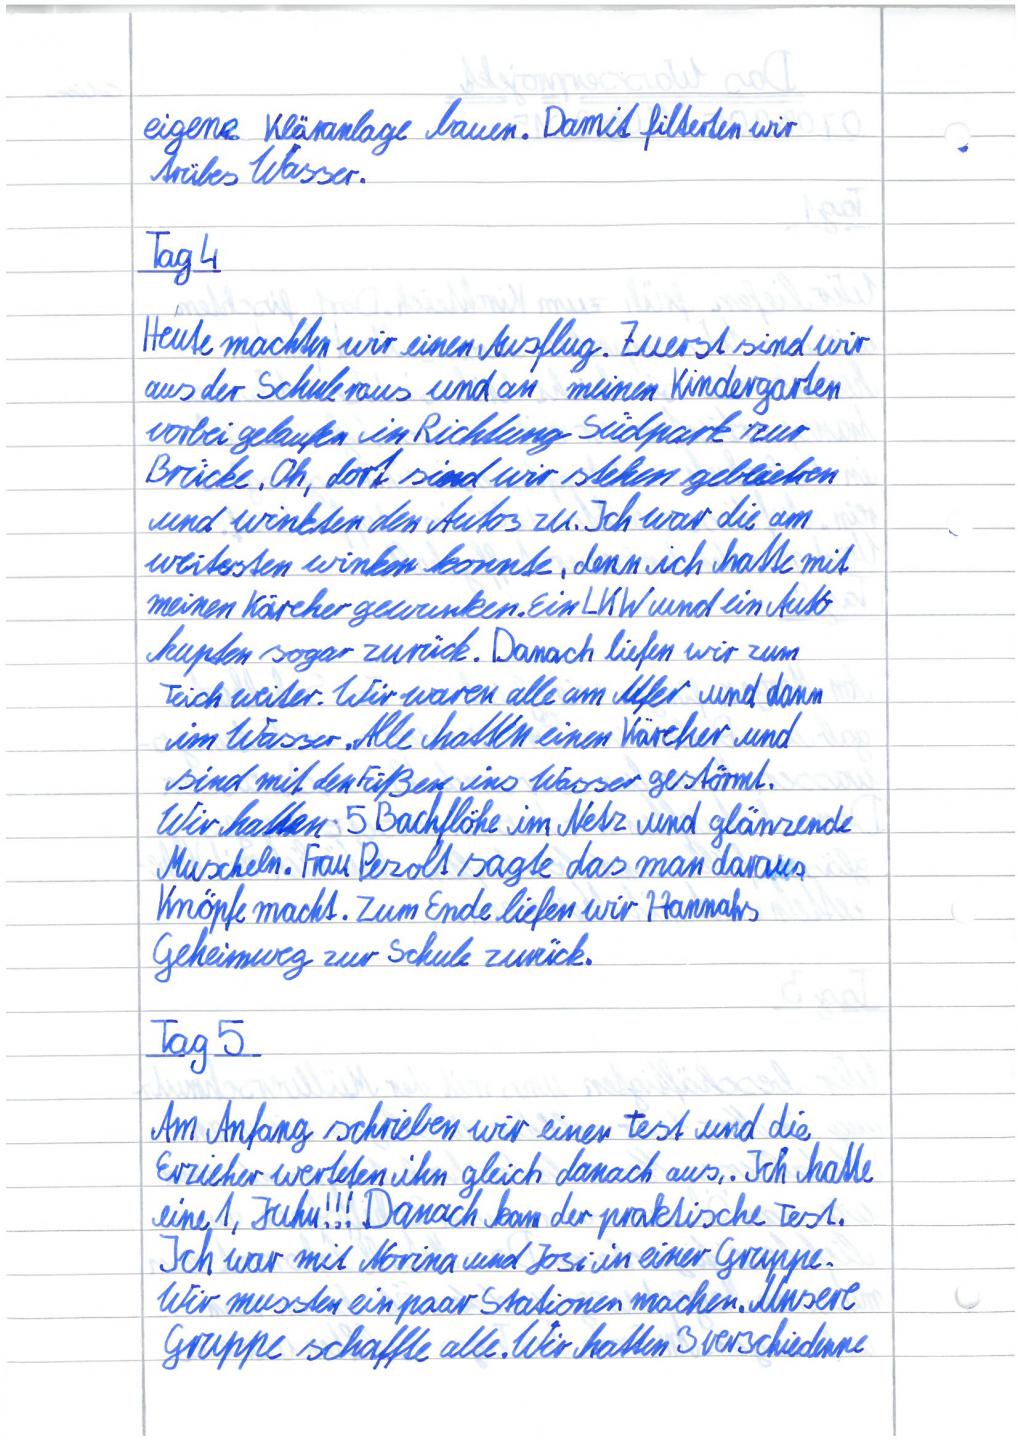 eigene Kläranlage bauen. Damit filterten wir
trübes Wasser.
Tag 4
Heute machten wir einen Ausflug. Zuerst sind wir
aus der Schule raus und an meinen Kindergarten
vorbei gelaufen in Richtung Südpark zur
Brücke. Oh, dort sind wir stehen geblieben
und winkten den Autos zu. Ich war die am
weitesten winken konnte, denn ich hatte mit
meinen Kärcher gewunken. Ein LKW und ein Auto
hupten sogar zurück. Danach liefen wir zum
Teich weiter. Wir waren alle am Ufer und dann
im Wasser. Alle hatten einen Kärcher und
sind mit den Füßen ins Wasser gestörmt.
Wir hatten 5 Bachflöhe im Netz und glänzende
Muscheln. Frau Pezolt sagte das man daraus
Knöpfe macht. Zum Ende liefen wir Hannahs
Geheimweg zur Schule zurück.
Tag 5
Am Anfang schrieben wir einen Test und die
Erzieher werteten ihn gleich danach aus. Ich hatte
eine 1, Juhu!!! Danach kam der praktische Test.
Ich war mit Norina und Josi in einer Gruppe.
Wir mussten ein paar Stationen machen. Unsere
Gruppe schaffte alle. Wir hatten 3 verschiedenne